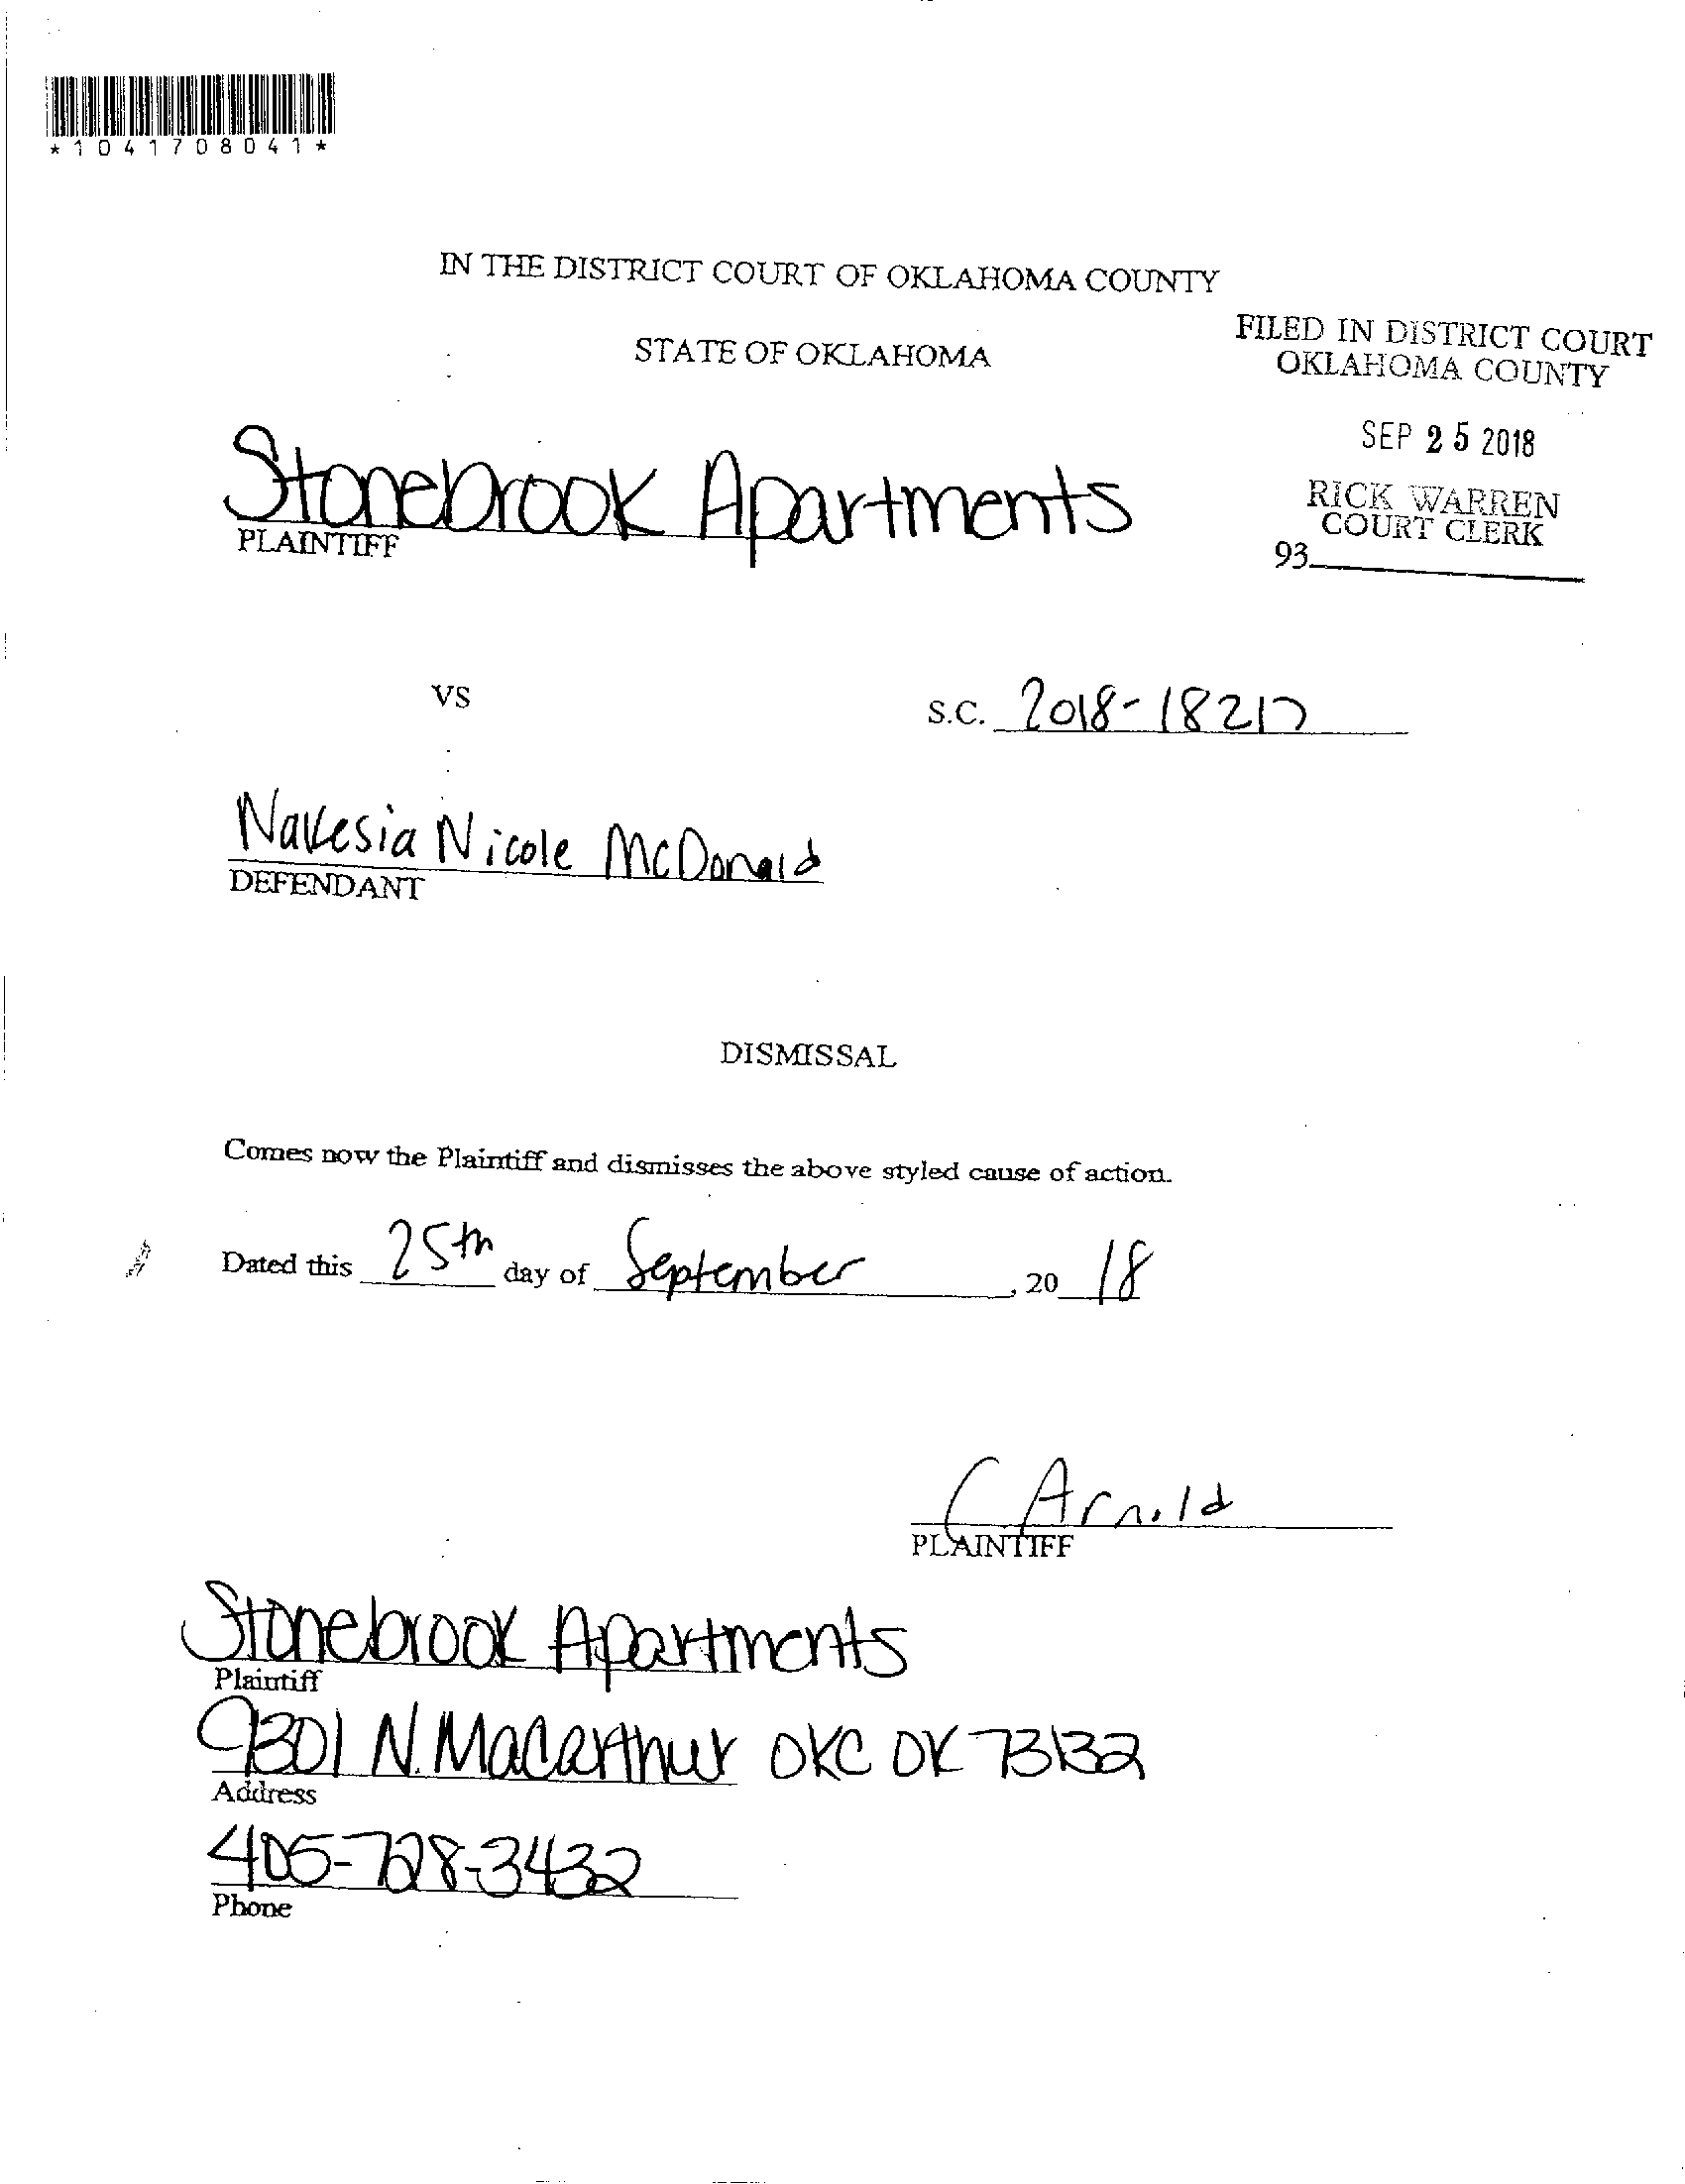 *1041708041*
IN THE DISTRICT COURT OF OKLAHOMA COUNTY
STATE OF OKLAHOMA
FILED IN DISTRICT COURT
OKLAHOMA COUNTY
SEP 25 2018
RICK WARREN
COURT CLERK
93
Stonebrook Apartments
PLAINTIFF
VS
S.C. 2018-18217
Nakesia Nicole McDonald
DEFENDANT
DISMISSAL
Comes now the Plaintiff and dismisses the above styled cause of action.
Dated this 25th day of September, 20 18
C Arnold
PLAINTIFF
Stonebrook Apartments
Plaintiff
9301 N. Macarthur OKC OK 73132
Address
405-728-3432
Phone